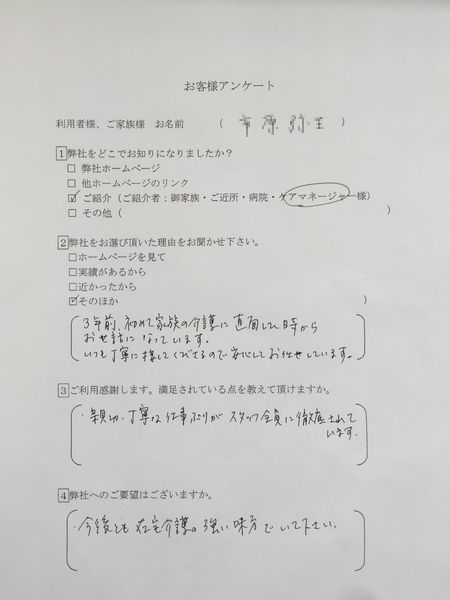 お客様アンケート
利用者様、ご家族様 お名前 ( )
1 弊社をどこでお知りになりましたか?
□ 弊社ホームページ
□ 他ホームページのリンク
☑ ご紹介(ご紹介者:御家族・ご近所・病院・ケアマネージャー様)
□ その他 ( )
2 弊社をお選び頂いた理由をお聞かせ下さい。
□ホームページを見て
□実績があるから
□近かったから
☑そのほか )
3年前、初めて家族の介護に直面した時から
お世話になっています。
いつも丁寧に接してくださるので安心してお任せしています。
3 ご利用感謝します。満足されている点を教えて頂けますか。
・親切、丁寧な仕事ぶりがスタッフ全員に徹底されて
います。
4 弊社へのご要望はございますか。
・今後とも在宅介護の強い味方でいて下さい。